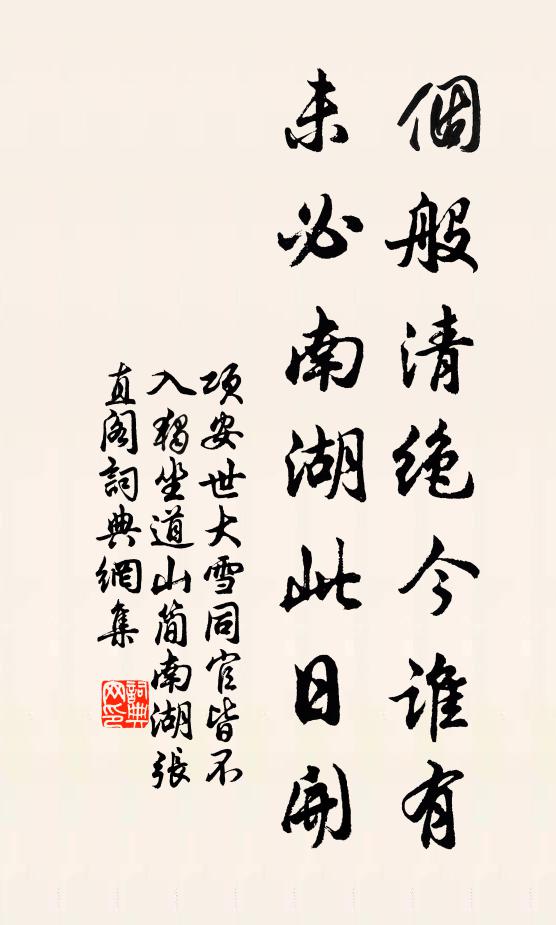 個般清絶今誰有
未必南湖此日開
項安世大雪同官皆不
入獨坐道山簡南湖張
直閣詞典網集
詞典
网印